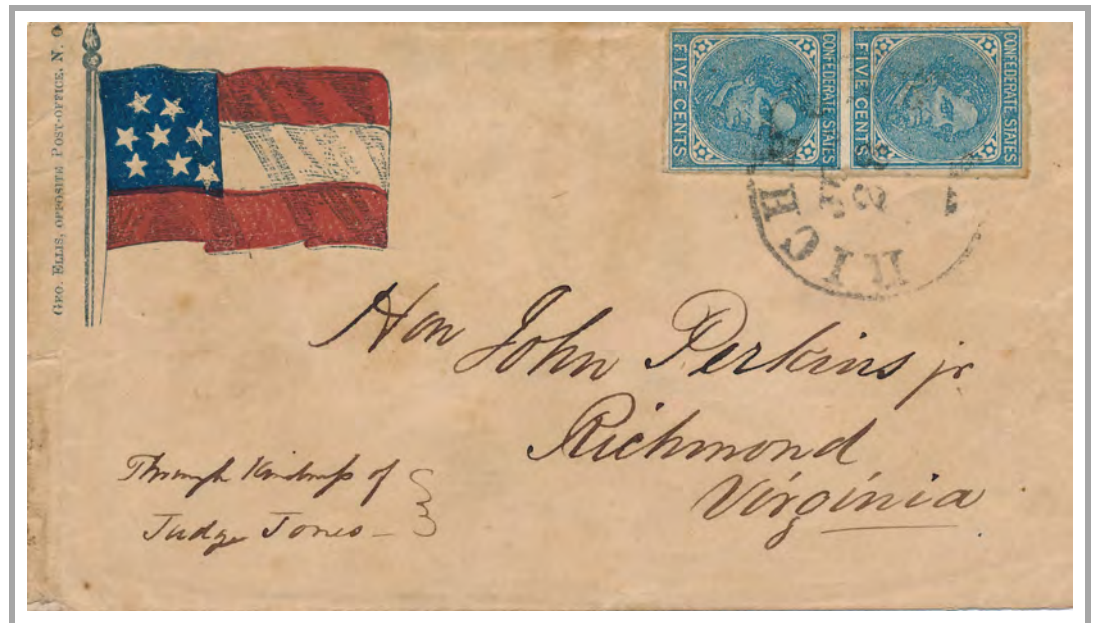 Geo. Ellis, opposite Post-office, N. O
CONFEDERATE STATES
FIVE CENTS
CONFEDERATE STATES
FIVE CENTS
RICH
Hon John Perkins jr
Richmond
Virginia
Through Kindness of
Judge Jones